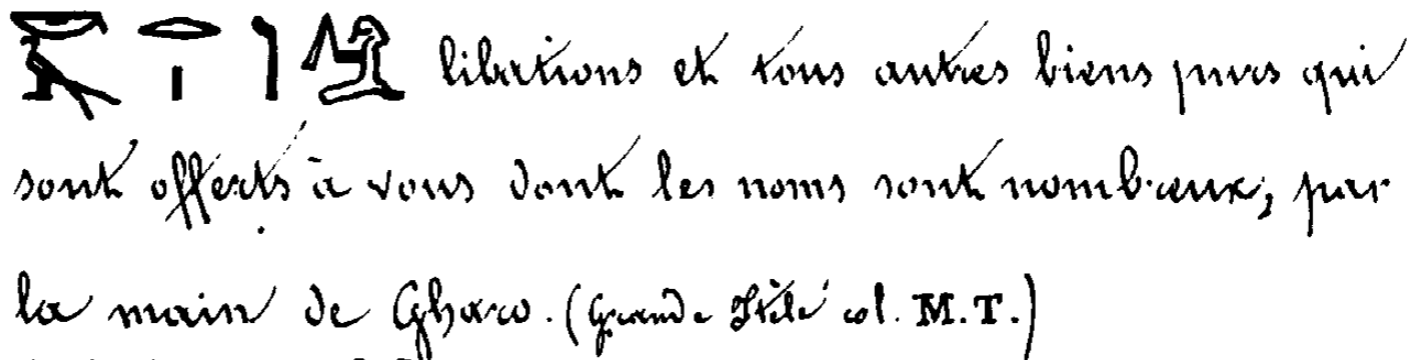 libations et tous autres biens purs qui
sont offerts à vous dont les noms sont nombreux, par
la main de Gharo. (Grande Stèle col. M.T.)